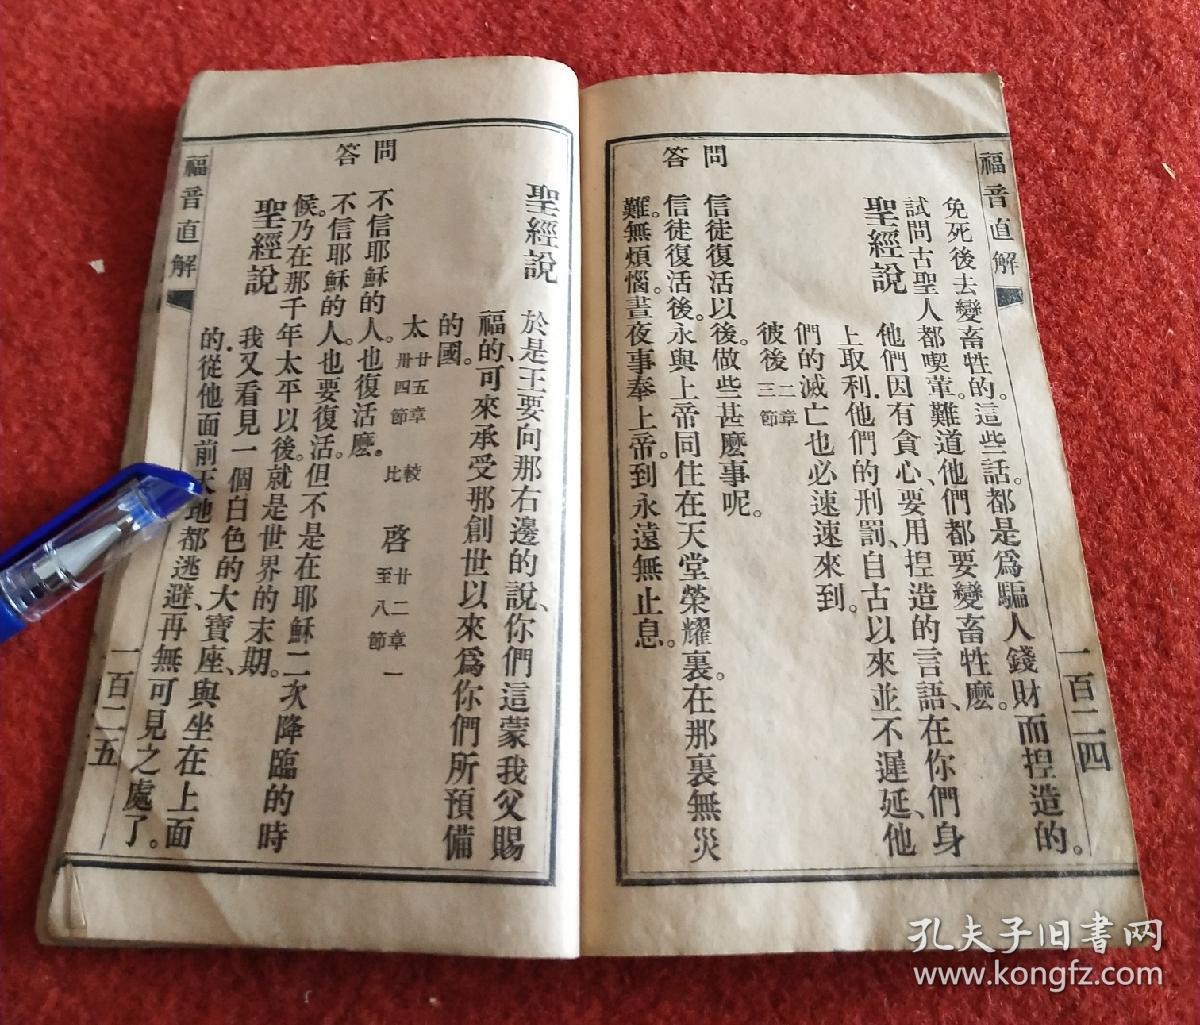 福音直解
一百二四
免死後去變畜牲的。這些話。都是爲騙人錢財而揑造的。
試問古聖人都喫葷。難道他們都要變畜牲麽。
聖經說
他們因有貪心、要用揑造的言語、在你們身
上取利、他們的刑罰、自古以來並不遲延、他
們的滅亡也必速速來到。
彼後二章三節
問
信徒復活以後。做些甚麽事呢。
答
信徒復活後。永與上帝同住在天堂榮耀裏。在那裏無災
難。無煩惱。晝夜事奉上帝。到永遠無止息。
聖經說
於是、王要向那右邊的說、你們這蒙我父賜
福的、可來承受那創世以來爲你們所預備
的國。
太廿五章卅四節 比較 啓廿二章一至八節
問
不信耶穌的人。也復活麽。
答
不信耶穌的人。也要復活。但不是在耶穌二次降臨的時
候。乃在那千年太平以後。就是世界的末期。
聖經說
我又看見一個白色的大寶座、與坐在上面
的、從他面前天地都逃避、再無可見之處了。
福音直解
一百二五
孔夫子旧書网
www.kongfz.com